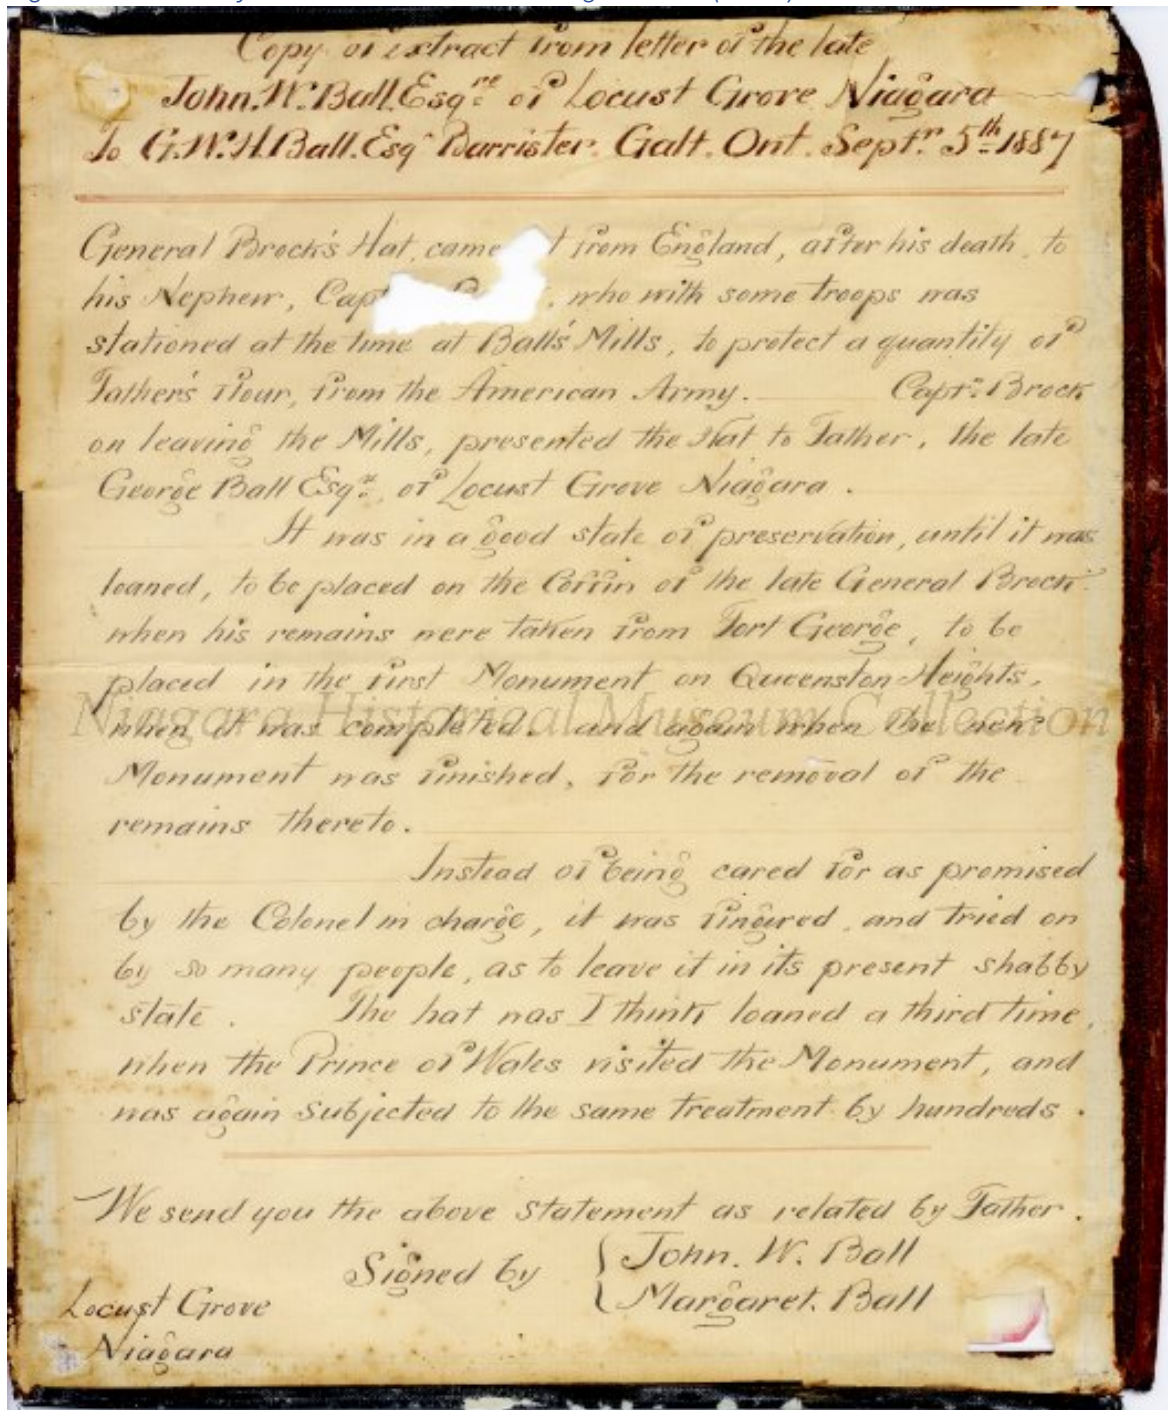 Copy of extract from letter of the late
John. W. Ball. Esqre of Locust Grove Niagara
To G. W. H. Ball. Esqr Barrister. Galt. Ont. Septr. 5th 1887
General Brock's Hat, came from England, after his death, to
his Nephew, Capt who with some troops was
stationed at the time at Ball's Mills, to protect a quantity of
Father's flour, from the American Army. Captn. Brock
on leaving the Mills, presented the Hat to Father, the late
George Ball Esqr., of Locust Grove Niagara.
It was in a good state of preservation, until it was
loaned, to be placed on the Coffin of the late General Brock
when his remains were taken from Fort George, to be
placed in the first Monument on Queenston Heights,
when it was completed. and again when the new
Monument was finished, for the removal of the
remains thereto.
Niagara Historical Museum Collection
Instead of being cared for as promised
by the Colonel in charge, it was fingered, and tried on
by so many people, as to leave it in its present shabby
state. The hat was I think loaned a third time,
when the Prince of Wales visited the Monument, and
was again subjected to the same treatment by hundreds.
We send you the above statement as related by Father.
Signed by { John. W. Ball
Margaret. Ball
Locust Grove
Niagara